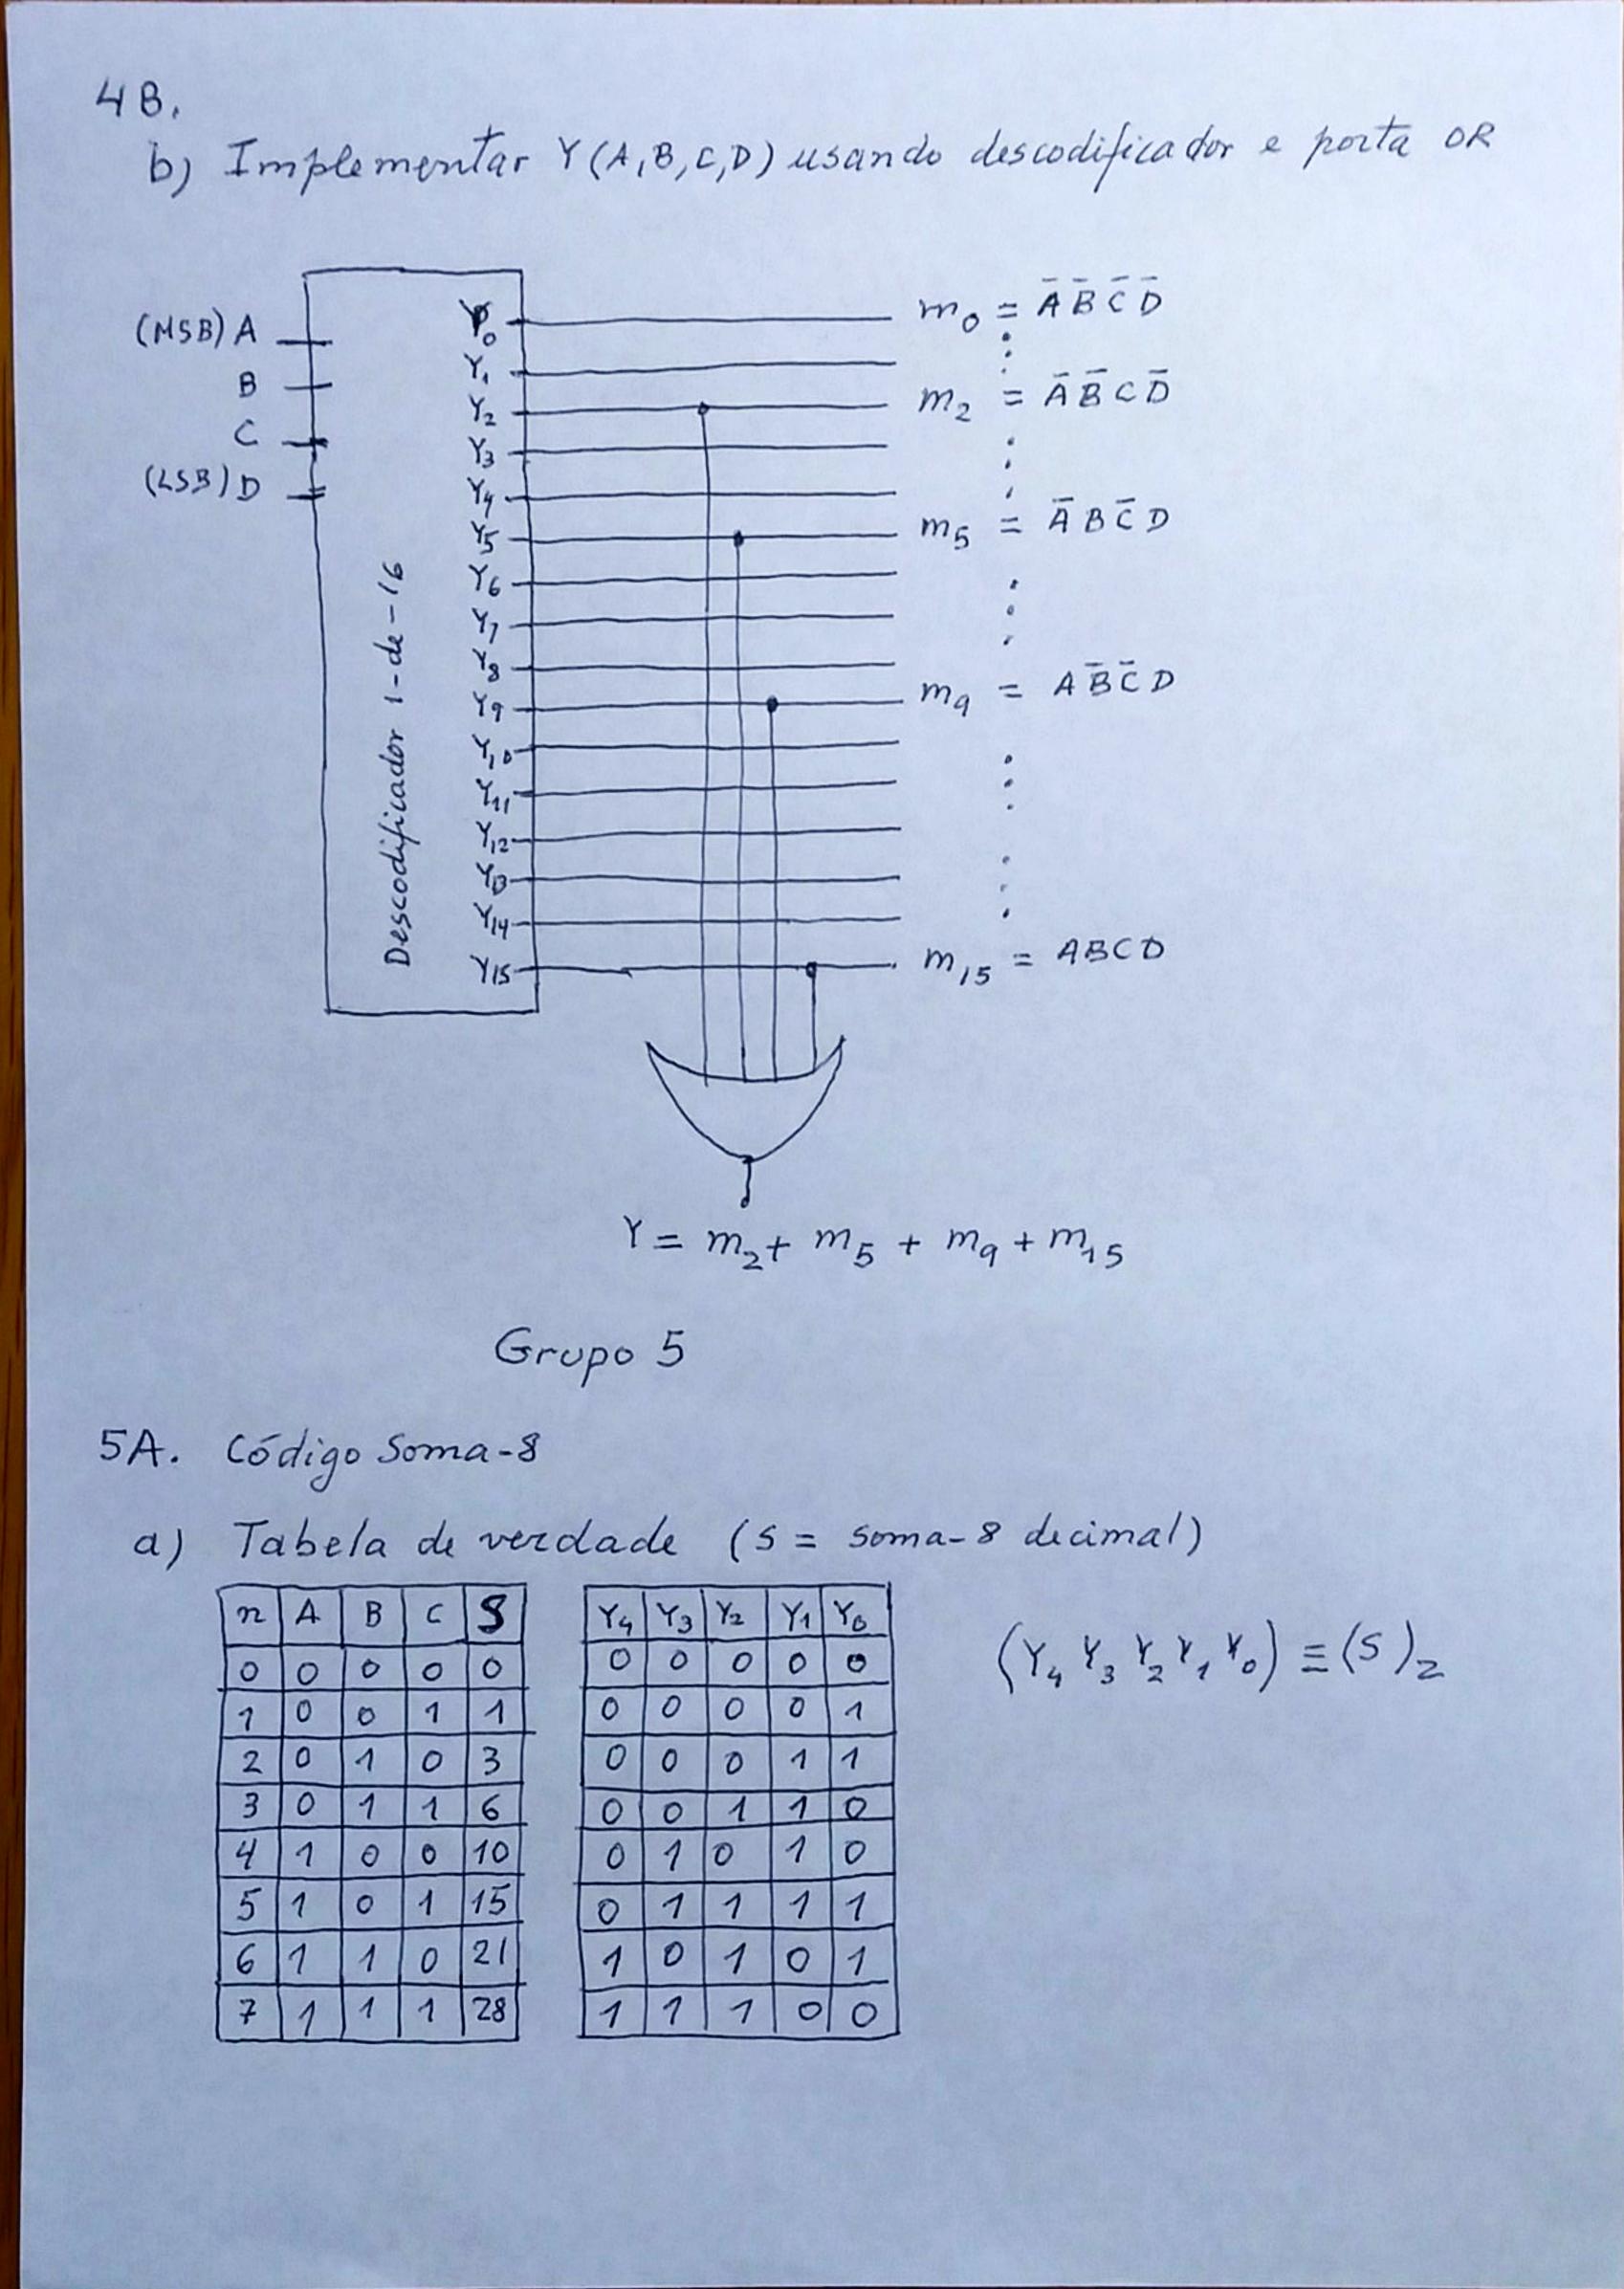 4B.
b) Implementar Y(A,B,C,D) usando descodificador e porta OR
(MSB) A
B
C
(LSB) D
Descodificador 1-de-16
Y₀
Y₁
Y₂
Y₃
Y₄
Y₅
Y₆
Y₇
Y₈
Y₉
Y₁₀
Y₁₁
Y₁₂
Y₁₃
Y₁₄
Y₁₅
m₀ = A̅ B̅ C̅ D̅
m₂ = A̅ B̅ C D̅
m₅ = A̅ B C̅ D
m₉ = A B̅ C̅ D
m₁₅ = A B C D
Y = m₂ + m₅ + m₉ + m₁₅
Grupo 5
5A. Código Soma-8
a) Tabela de verdade (S = soma-8 decimal)
n A B C S Y₄ Y₃ Y₂ Y₁ Y₀
0 0 0 0 0 0 0 0 0 0
1 0 0 1 1 0 0 0 0 1
2 0 1 0 3 0 0 0 1 1
3 0 1 1 6 0 0 1 1 0
4 1 0 0 10 0 1 0 1 0
5 1 0 1 15 0 1 1 1 1
6 1 1 0 21 1 0 1 0 1
7 1 1 1 28 1 1 1 0 0
(Y₄ Y₃ Y₂ Y₁ Y₀) ≡ (S)₂